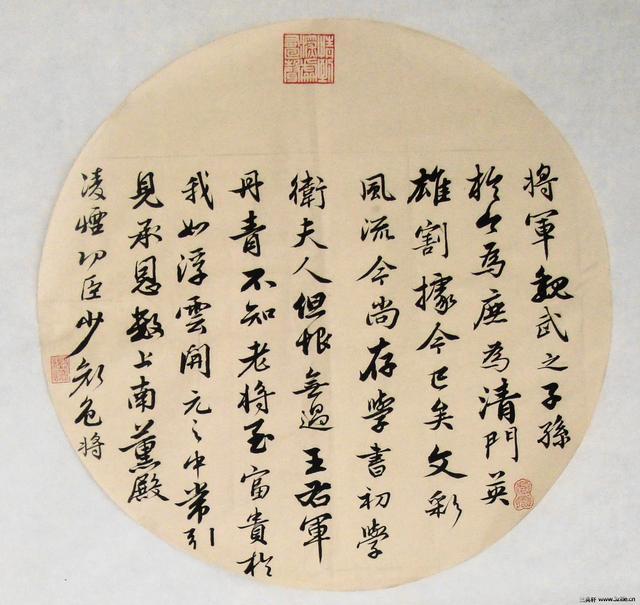 将軍魏武之子孫
於今為庶為清門英
雄割據今已矣文彩
風流今尚存學書初學
衛夫人但恨無過王右軍
丹青不知老将至富貴於
我如浮雲開元之中常引
見承恩數上南薰殿
凌煙功臣少顏色将